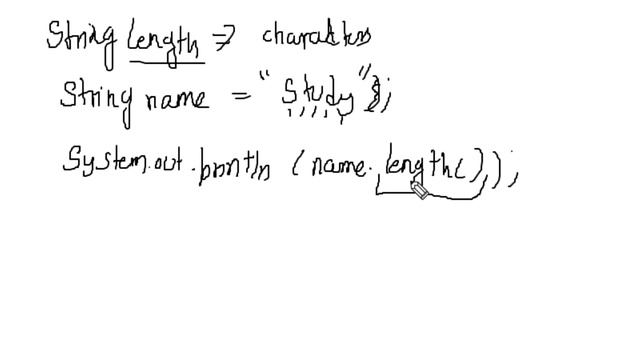 String length => characters
String name = "Study";
System.out.println (name.length());